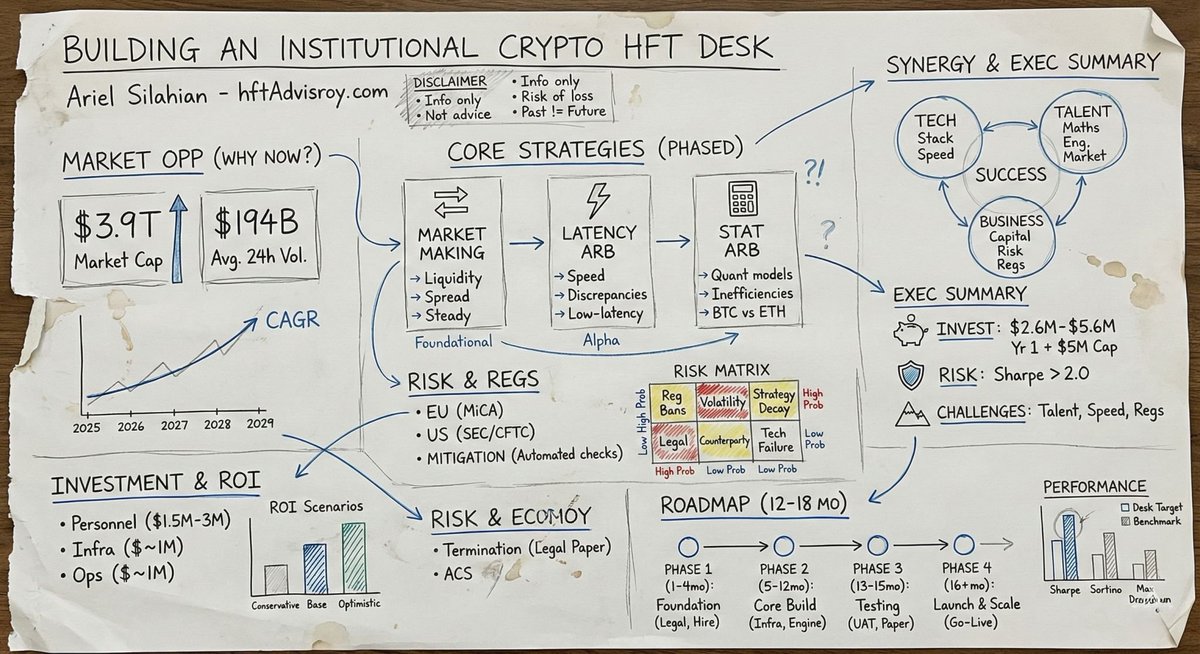 BUILDING AN INSTITUTIONAL CRYPTO HFT DESK
Ariel Silahian - hftAdvisroy.com
DISCLAIMER
• Info only
• Not advice
• Info only
• Risk of loss
• Past != Future
MARKET OPP (WHY NOW?)
$3.9T
Market Cap
$194B
Avg. 24h Vol.
CAGR
2025 2026 2027 2028 2029
CORE STRATEGIES (PHASED)
MARKET
MAKING
→ Liquidity
→ Spread
→ Steady
Foundational
LATENCY
ARB
→ Speed
→ Discrepancies
→ Low-latency
Alpha
STAT
ARB
→ Quant models
→ Inefficiencies
→ BTC vs ETH
?!
?
SYNERGY & EXEC SUMMARY
TECH
Stack
Speed
TALENT
Maths
Eng.
Market
SUCCESS
BUSINESS
Capital
Risk
Regs
EXEC SUMMARY
INVEST: $2.6M-$5.6M
Yr 1 + $5M Cap
RISK: Sharpe > 2.0
CHALLENGES: Talent, Speed, Regs
RISK & REGS
• EU (MiCA)
• US (SEC/CFTC)
• MITIGATION (Automated checks)
RISK MATRIX
Low High Prob
Reg
Bans
Volatility
Strategy
Decay
High
Prob
Legal
Counterparty
Tech
Failure
Low
Prob
High Prob
Low Prob
Low Prob
INVESTMENT & ROI
• Personnel ($1.5M-3M)
• Infra ($~1M)
• Ops ($~1M)
ROI Scenarios
Conservative Base Optimistic
RISK & ECOMOY
• Termination (Legal Paper)
• ACS
ROADMAP (12-18 MO)
PHASE 1
(1-4mo):
Foundation
(Legal, Hire)
PHASE 2
(5-12mo):
Core Build
(Infra, Engine)
PHASE 3
(13-15mo):
Testing
(UAT, Paper)
PHASE 4
(16+mo):
Launch & Scale
(Go-Live)
PERFORMANCE
Desk Target
Benchmark
Sharpe
Sortino
Max